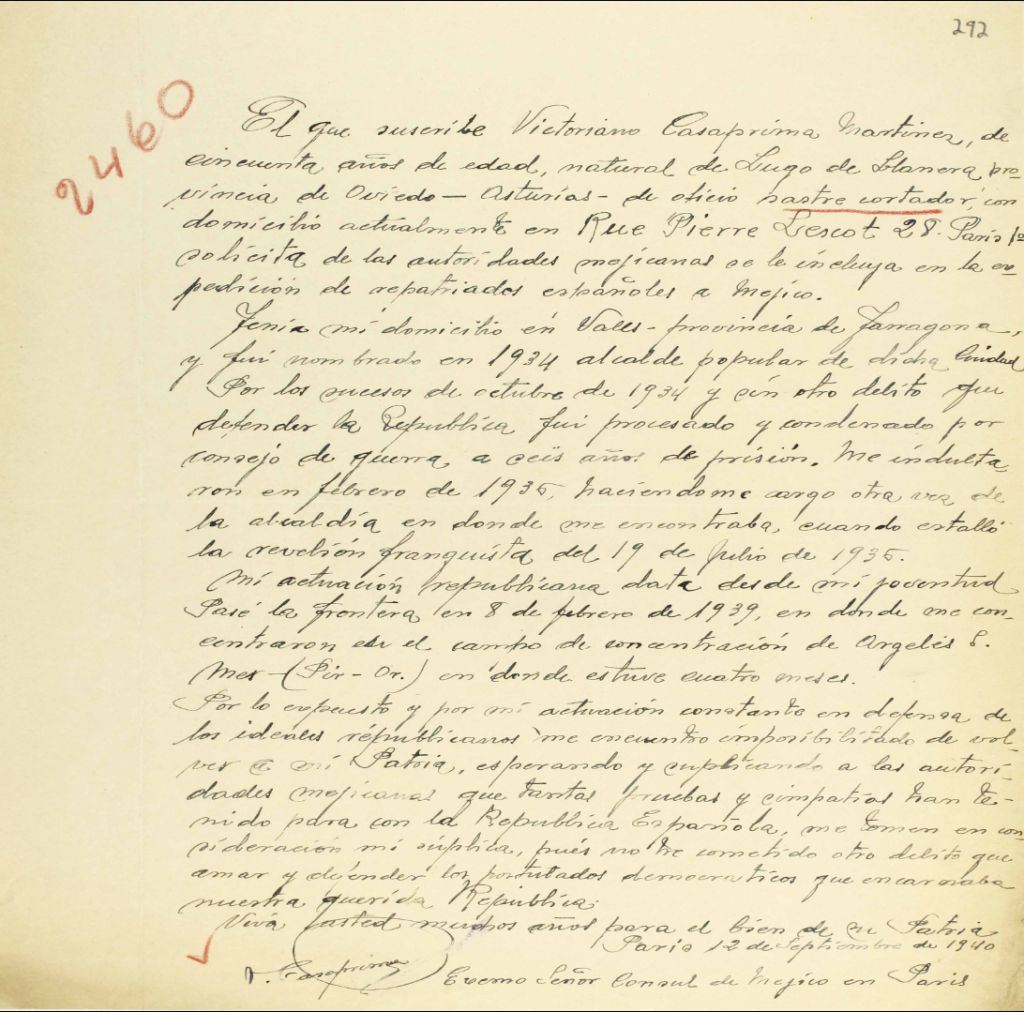 292
2460
El que suscribe Victoriano Casaprima Martinez, de
cincuenta años de edad, natural de Lugo de Llanera, pro-
vincia de Oviedo — Asturias - de oficio sastre cortador, con
domicilio actualmente en Rue Pierre Lescot 28. Paris 1º
solicita de las autoridades mejicanas se le incluya en la ex-
pedición de repatriados españoles a Mejico.
Tenia mi domicilio en Valls - provincia de Tarragona,
y fui nombrado en 1934 alcalde popular de dicha Ciudad
Por los sucesos de octubre de 1934 y sin otro delito que
defender la Republica fui procesado y condenado por
consejo de guerra, a seis años de prisión. Me indulta-
ron en febrero de 1936, haciendome cargo otra vez de
la alcaldía en donde me encontraba, cuando estalló
la revelión franquista del 19 de Julio de 1936.
Mi actuación republicana data desde mi joventud
Pasé la frontera en 8 de febrero de 1939, en donde me con-
centraron en el campo de concentración de Argelés S.
Mer - (Pir - Or.) en donde estuve cuatro meses.
Por lo expuesto y por mi actuación constante en defensa de
los ideales républicanos me encuentro imposibilitado de vol-
ver a mi Patria, esperando y suplicando a las autori-
dades mejicanas que tantas pruebas y simpatias han te-
nido para con la Republica Española, me tomen en con-
sideracion mi súplica, pués no he cometido otro delito que
amar y defender los postulados democraticos que encarnaba
nuestra querida Republica.
Viva usted muchos años para el bien de su Patria
Paris 12 de Septiembre de 1940
V. Casaprima
Exemo Señor Consul de Mejico en Paris